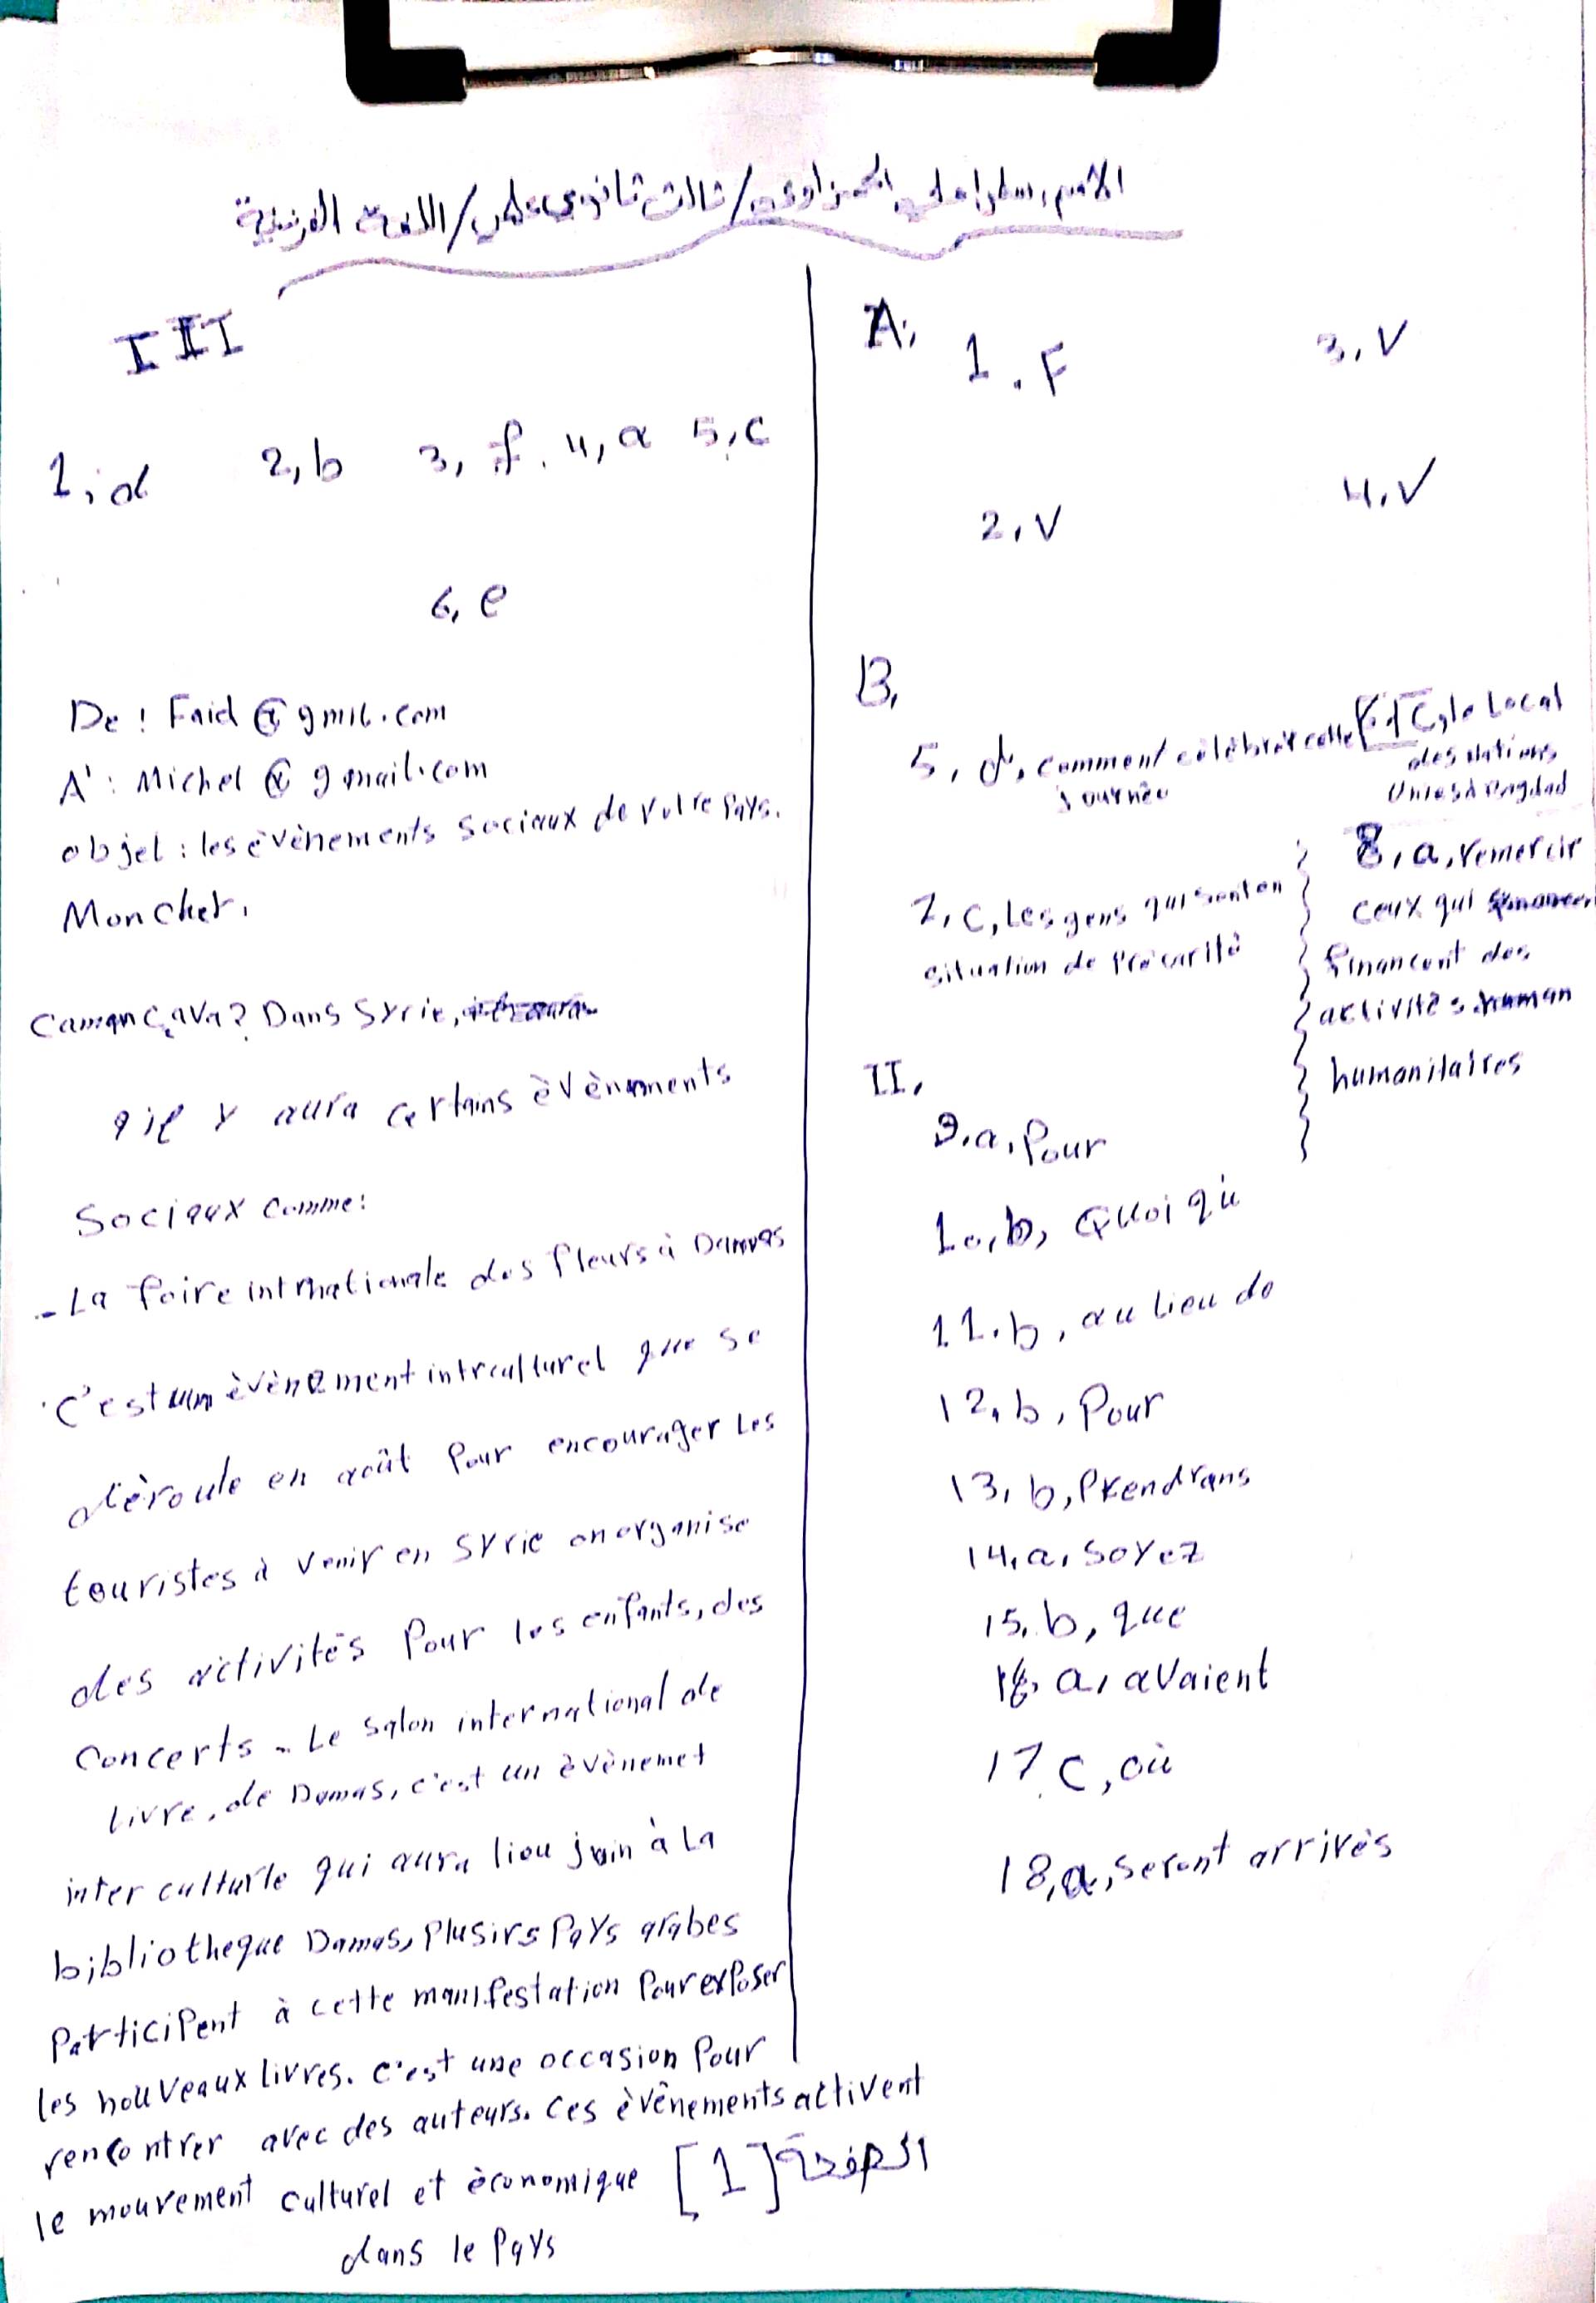 الاسم: / ثالث ثانوي علمي / اللغة الفرنسية
A,
1. F
3, V
2, V
4, V
B,
5, d, comment célébrer cette
journée
6, C, le Local
des Nations
Unies à Bagdad
7, C, Les gens qui sont en
situation de précarité
8, a, remercir
ceux qui
financent des
activités
humanitaires
II,
9. a, Pour
10, b, Quoi qu'
11. b, au lieu de
12, b, Pour
13, b, Prendrans
14, a, Soyez
15, b, que
16, a, avaient
17, C, où
18, a, Seront arrivés
III
1, d 2, b 3, f. 4, a 5, c
6, e
De : Faid @ gmil.com
A' : Michel @ gmail.com
objet : les évènements sociaux de votre Pays.
Mon cher,
Coman ç ava? Dans Syrie,
il y aura certains évènements
Sociaux comme:
- La foire intrnationale des fleurs à Damas
C'est un évènement intrculturel que se
déroule en août Pour encourager Les
touristes à venir en Syrie on organise
des activités Pour les enfants, des
Concerts - Le Salon international de
Livre, de Damas, c'est un évènemet
inter culturle qui aura lieu juin à La
bibliotheque Damas, Plusirs Pays arabes
Participent à cette manifestation Pour exposer
les nouveaux Livres. C'est une occasion Pour
rencontrer avec des auteurs. Ces évènements activent
le mouvement culturel et économique
dans le Pays
الصفحة [1]